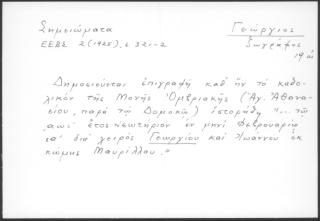 Σημειώματα
ΕΕΒΣ 2 (1925), σ. 321-2
Γεώργιος
Ζωγράφος
19ος
Δημοσιεύεται ἐπιγραφὴ καθ' ἣν τὸ καθο-
λικὸν τῆς Μονῆς Ὀμβριακῆς (Ἁγ. Ἀθανα-
σίου, παρὰ τῷ Δομοκῷ) ἱστορήθη "... τῷ
αωι' ἔτος σωτήριον ἐν μηνὶ Φεβρουαρίῳ
ια' διὰ χειρὸς Γεωργίου καὶ Ἰωάννου ἐκ
κώμης Μαυρίλλου."